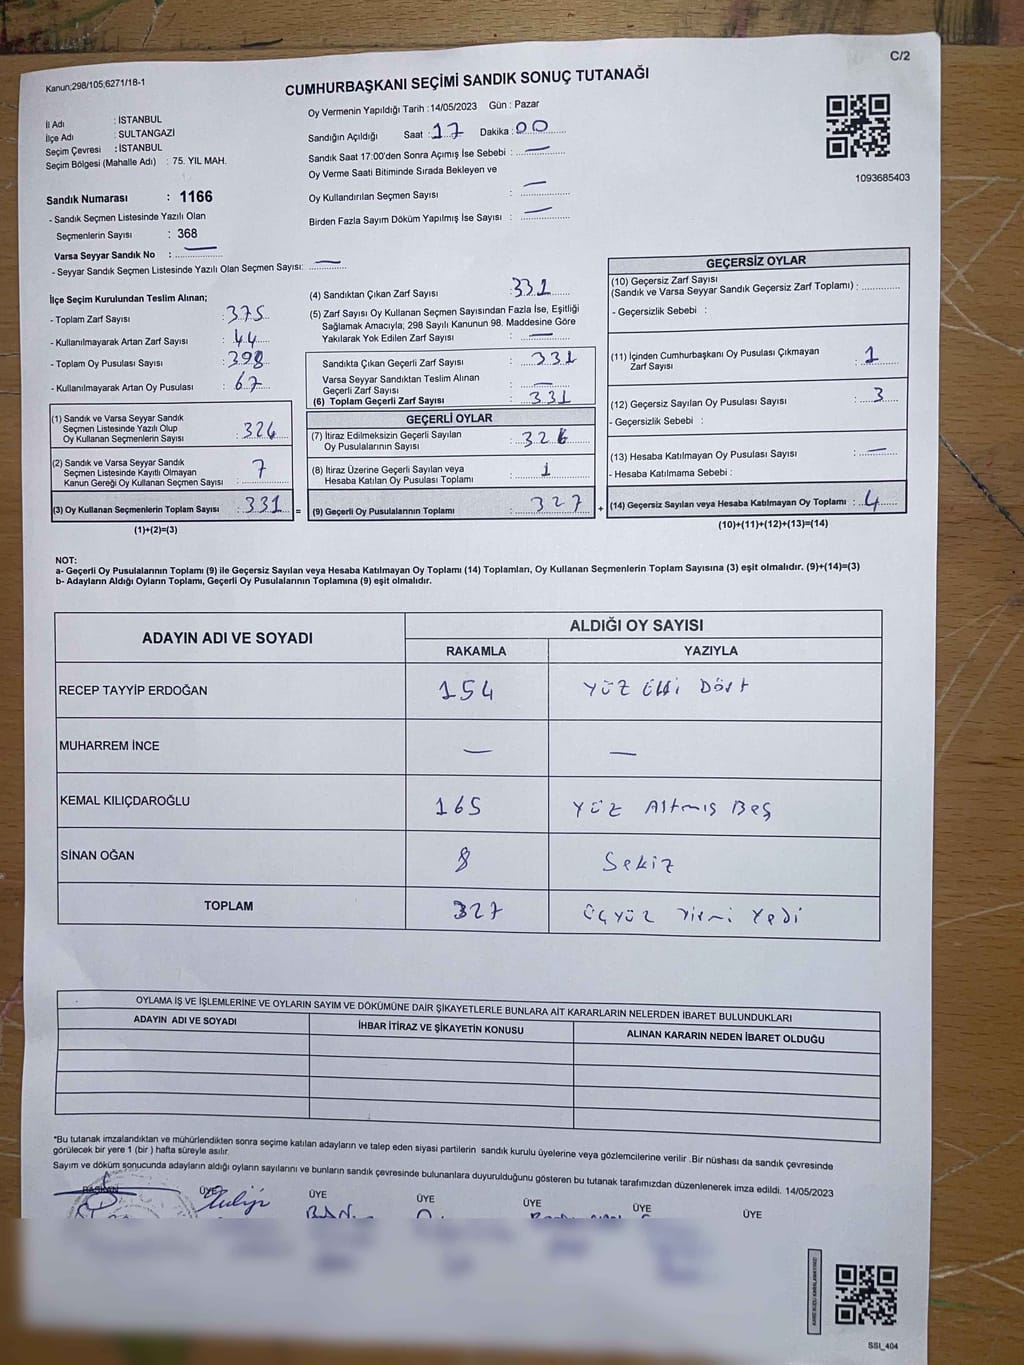 C/2
Kanun;298/105;6271/18-1
CUMHURBAŞKANI SEÇİMİ SANDIK SONUÇ TUTANAĞI
1093685403
İl Adı : İSTANBUL
İlçe Adı : SULTANGAZİ
Seçim Çevresi : İSTANBUL
Seçim Bölgesi (Mahalle Adı) : 75. YIL MAH.
Sandık Numarası : 1166
- Sandık Seçmen Listesinde Yazılı Olan
Seçmenlerin Sayısı : 368
Varsa Seyyar Sandık No : —
- Seyyar Sandık Seçmen Listesinde Yazılı Olan Seçmen Sayısı: —
Oy Vermenin Yapıldığı Tarih :14/05/2023 Gün : Pazar
Sandığın Açıldığı Saat : 17 Dakika : 00
Sandık Saat 17:00'den Sonra Açımış İse Sebebi : —
Oy Verme Saati Bitiminde Sırada Bekleyen ve
Oy Kullandırılan Seçmen Sayısı : —
Birden Fazla Sayım Döküm Yapılmış İse Sayısı : —
İlçe Seçim Kurulundan Teslim Alınan;
- Toplam Zarf Sayısı : 375
- Kullanılmayarak Artan Zarf Sayısı : 44
- Toplam Oy Pusulası Sayısı : 398
- Kullanılmayarak Artan Oy Pusulası : 67
(1) Sandık ve Varsa Seyyar Sandık
Seçmen Listesinde Yazılı Olup
Oy Kullanan Seçmenlerin Sayısı : 324
(2) Sandık ve Varsa Seyyar Sandık
Seçmen Listesinde Kayıtlı Olmayan
Kanun Gereği Oy Kullanan Seçmen Sayısı : 7
(3) Oy Kullanan Seçmenlerin Toplam Sayısı : 331 =
(1)+(2)=(3)
(4) Sandıktan Çıkan Zarf Sayısı : 331
(5) Zarf Sayısı Oy Kullanan Seçmen Sayısından Fazla İse, Eşitliği
Sağlamak Amacıyla; 298 Sayılı Kanunun 98. Maddesine Göre
Yakılarak Yok Edilen Zarf Sayısı : —
Sandıkta Çıkan Geçerli Zarf Sayısı : 331
Varsa Seyyar Sandıktan Teslim Alınan
Geçerli Zarf Sayısı : —
(6) Toplam Geçerli Zarf Sayısı : 331
GEÇERLİ OYLAR
(7) İtiraz Edilmeksizin Geçerli Sayılan
Oy Pusulalarının Sayısı : 326
(8) İtiraz Üzerine Geçerli Sayılan veya
Hesaba Katılan Oy Pusulası Toplamı : 1
(9) Geçerli Oy Pusulalarının Toplamı : 327 +
GEÇERSİZ OYLAR
(10) Geçersiz Zarf Sayısı
(Sandık ve Varsa Seyyar Sandık Geçersiz Zarf Toplamı) :
- Geçersizlik Sebebi :
(11) İçinden Cumhurbaşkanı Oy Pusulası Çıkmayan
Zarf Sayısı : 1
(12) Geçersiz Sayılan Oy Pusulası Sayısı : 3
- Geçersizlik Sebebi :
(13) Hesaba Katılmayan Oy Pusulası Sayısı : —
- Hesaba Katılmama Sebebi :
(14) Geçersiz Sayılan veya Hesaba Katılmayan Oy Toplamı : 4
(10)+(11)+(12)+(13)=(14)
NOT:
a- Geçerli Oy Pusulalarının Toplamı (9) ile Geçersiz Sayılan veya Hesaba Katılmayan Oy Toplamı (14) Toplamları, Oy Kullanan Seçmenlerin Toplam Sayısına (3) eşit olmalıdır. (9)+(14)=(3)
b- Adayların Aldığı Oyların Toplamı, Geçerli Oy Pusulalarının Toplamına (9) eşit olmalıdır.
ADAYIN ADI VE SOYADI ALDIĞI OY SAYISI
RAKAMLA YAZIYLA
RECEP TAYYİP ERDOĞAN 154 Yüz Elli Dört
MUHARREM İNCE — —
KEMAL KILIÇDAROĞLU 165 Yüz Altmış Beş
SİNAN OĞAN 8 Sekiz
TOPLAM 327 Üçyüz Yirmi Yedi
OYLAMA İŞ VE İŞLEMLERİNE VE OYLARIN SAYIM VE DÖKÜMÜNE DAİR ŞİKAYETLERLE BUNLARA AİT KARARLARIN NELERDEN İBARET BULUNDUKLARI
ADAYIN ADI VE SOYADI İHBAR İTİRAZ VE ŞİKAYETİN KONUSU ALINAN KARARIN NEDEN İBARET OLDUĞU
*Bu tutanak imzalandıktan ve mühürlendikten sonra seçime katılan adayların ve talep eden siyasi partilerin sandık kurulu üyelerine veya gözlemcilerine verilir .Bir nüshası da sandık çevresinde
görülecek bir yere 1 (bir ) hafta süreyle asılır.
Sayım ve döküm sonucunda adayların aldığı oyların sayılarını ve bunların sandık çevresinde bulunanlara duyurulduğunu gösteren bu tutanak tarafımızdan düzenlenerek imza edildi. 14/05/2023
BAŞKAN ÜYE ÜYE ÜYE ÜYE ÜYE ÜYE
SSI_404